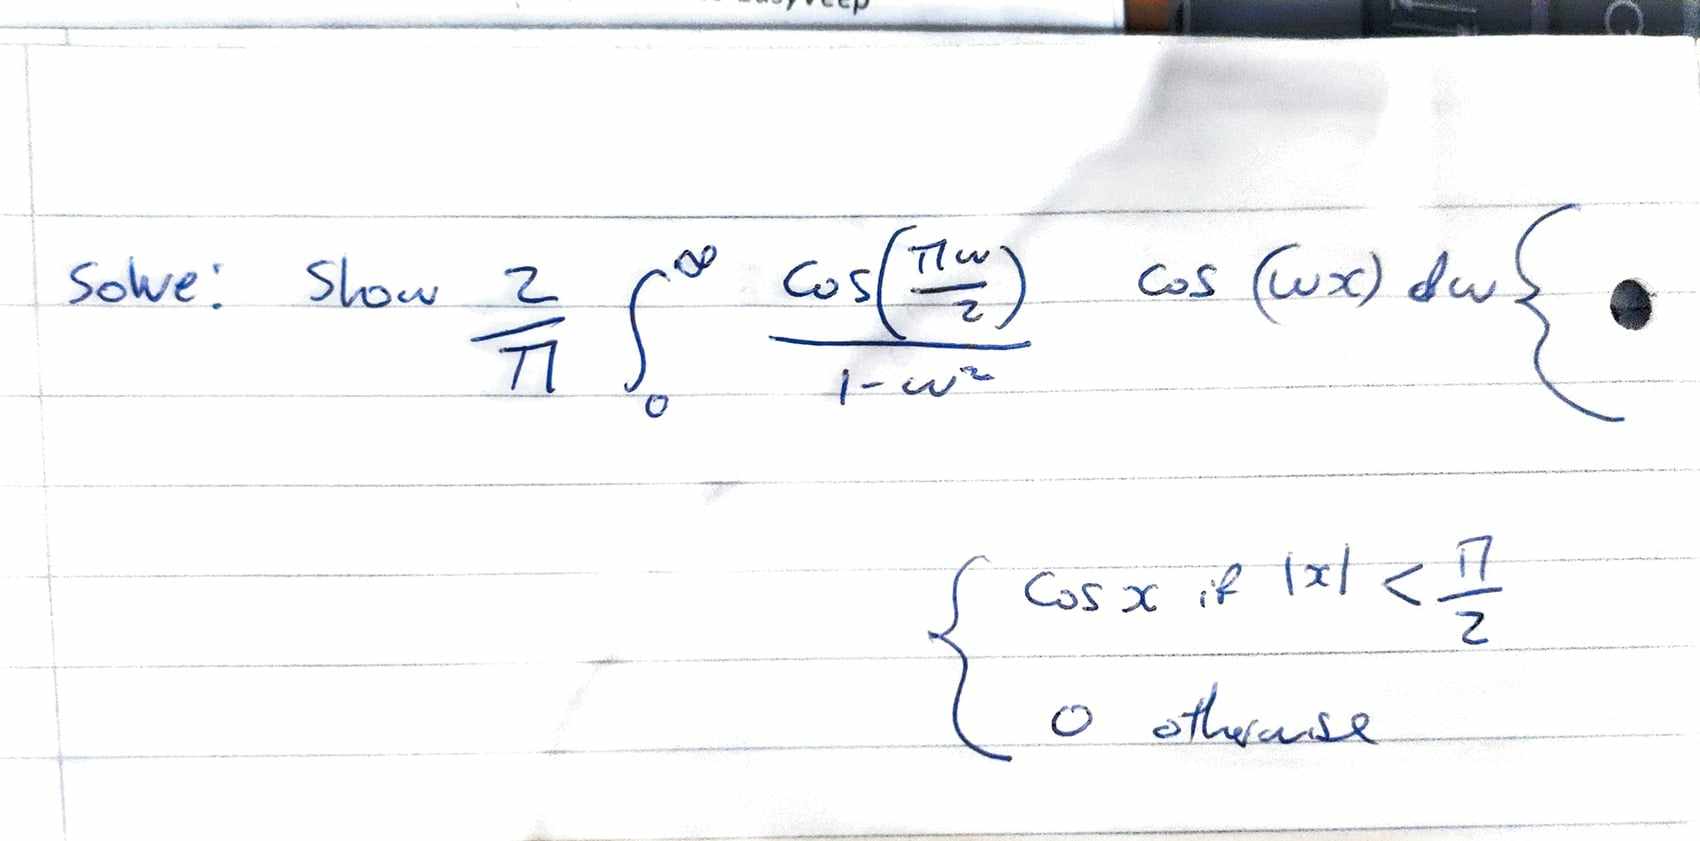 Solve: Show 2/π ∫₀^∞ cos(πω/2)/(1-ω²) cos(ωx) dω {
{ cos x if |x| < π/2
0 otherwise